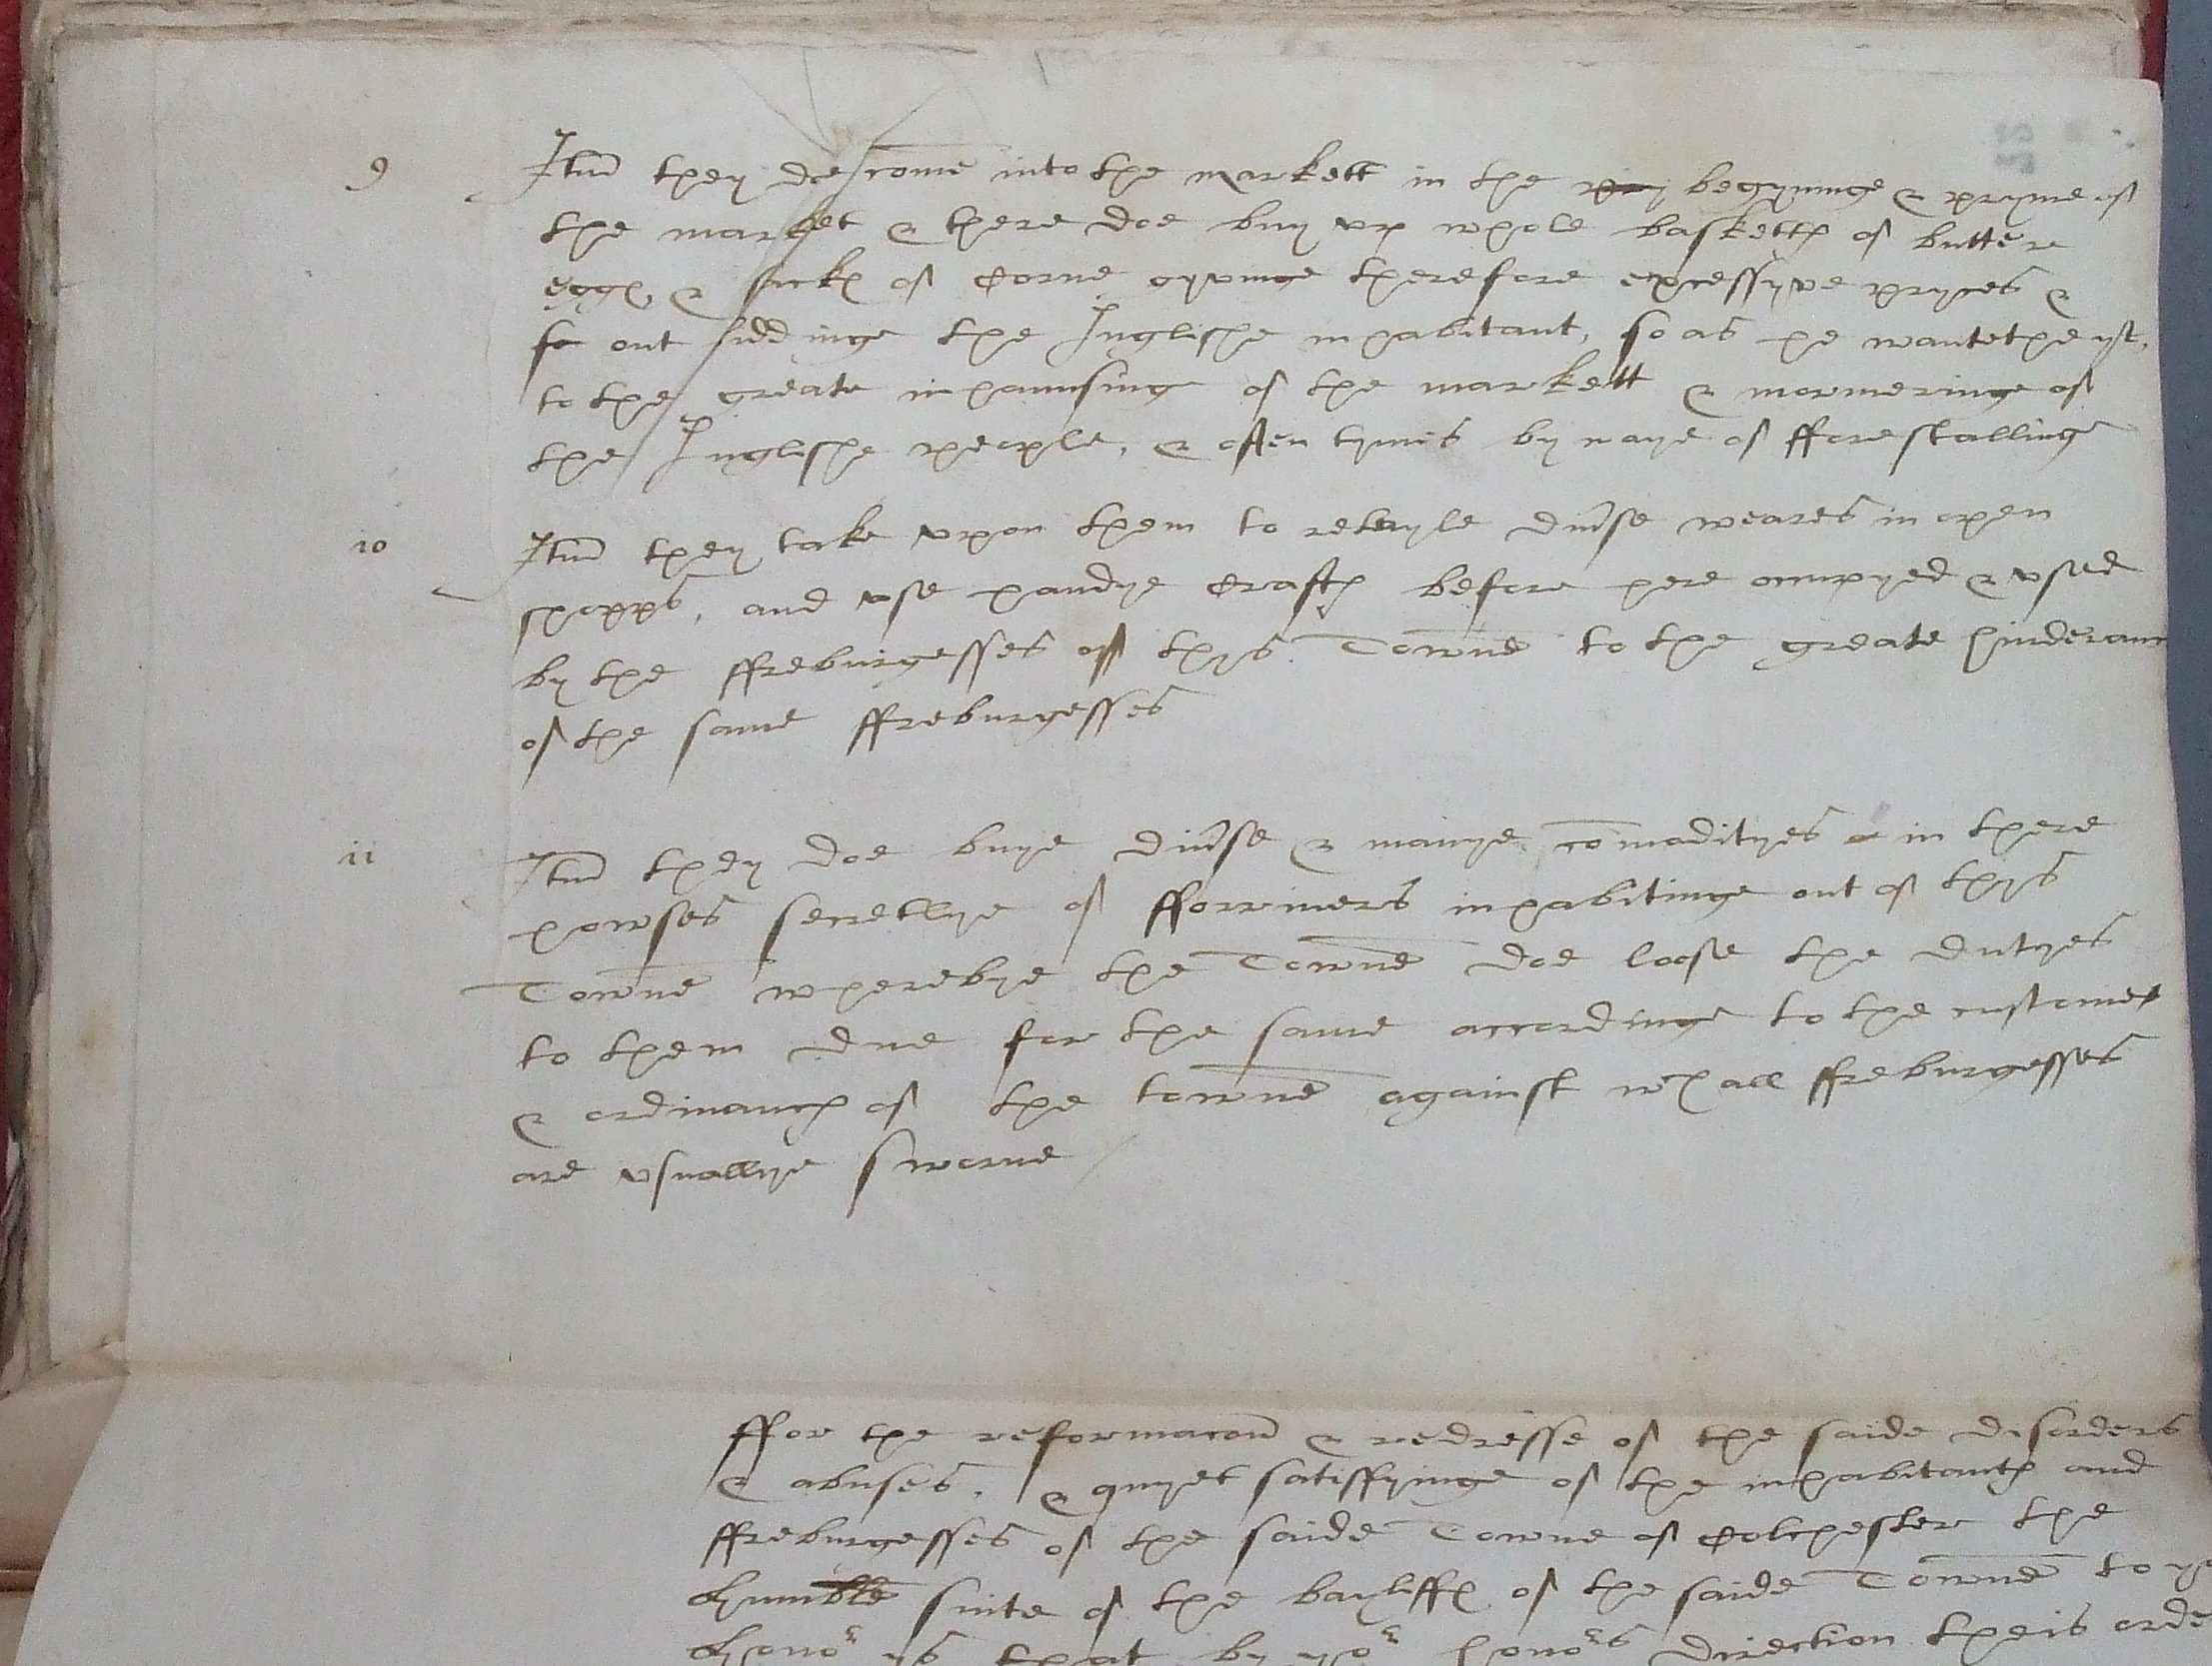 9 Itm̄ they doe come into the markett in the begynninge & pryme of
the market & there doe buy vp whole baskettꝭ of butter
eggꝭ, & sackꝭ of Corne gyvinge therefore excessyve pryces &
so out biddinge the Inglishe inhabitant, so as he wantethe yt,
to the greate inhaunsing of the markett & murmeringe of
the Inglishe people, & often tymes by waye of fforestallinge
10 Itm̄ they take vpon them to retayle div̄se weares in open
shopps, and vse handye Craftꝭ before here occupyed & vsed
by the ffreburgesses of thys Towne to the greate hinderanc
of the same ffreburgesses
11 Itm̄ they doe buye div̄se & manye com̄odityes in there
howses secretlye of fforriners inhabitinge out of thys
Towne wherebye the Towne doe loose the dutyes
to them due for the same accordinge to the custome
& ordinancꝭ of the towne against wch all ffreburgesses
are vsuallye sworne
ffor the reformacon̄ & redresse of the saide disorders
& abuses, & quyet satisffyinge of the inhabitantꝭ and
ffreburgesses of the saide Towne of Colchester the
humble suite of the bayliffꝭ of the saide Towne to
honor ys that by yor honors direction theis orde